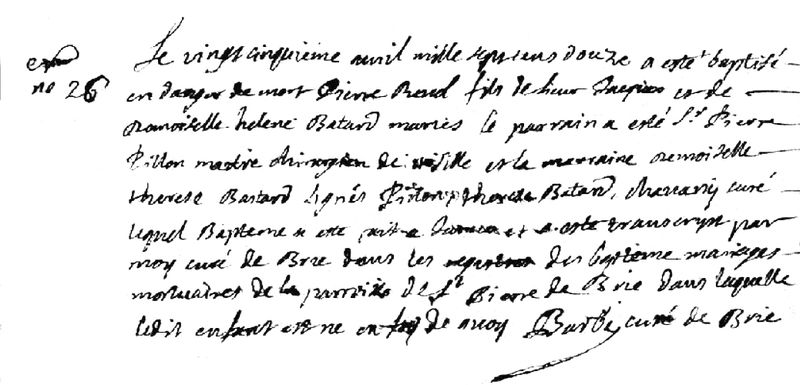 Le vingt cinquieme avril mille sept cens douze a esté baptisé
no 26 en danger de mort Pierre fils de sieur Jacques et de
Damoiselle helene Batard mariés le parrain a esté Sr Pierre
Pillon maitre chirurgien de et la marraine Demoiselle
therese Bastard signés Pillon, therese Batard, chavany curé
lequel Bapteme a esté fait a et a esté transcript par
moy curé de Brie dans les registres des bapteme mariages
mortuaires de la parroisse de St Pierre de Brie dans laquelle
ledit enfant est ne en foy de quoy Barbé curé de Brie